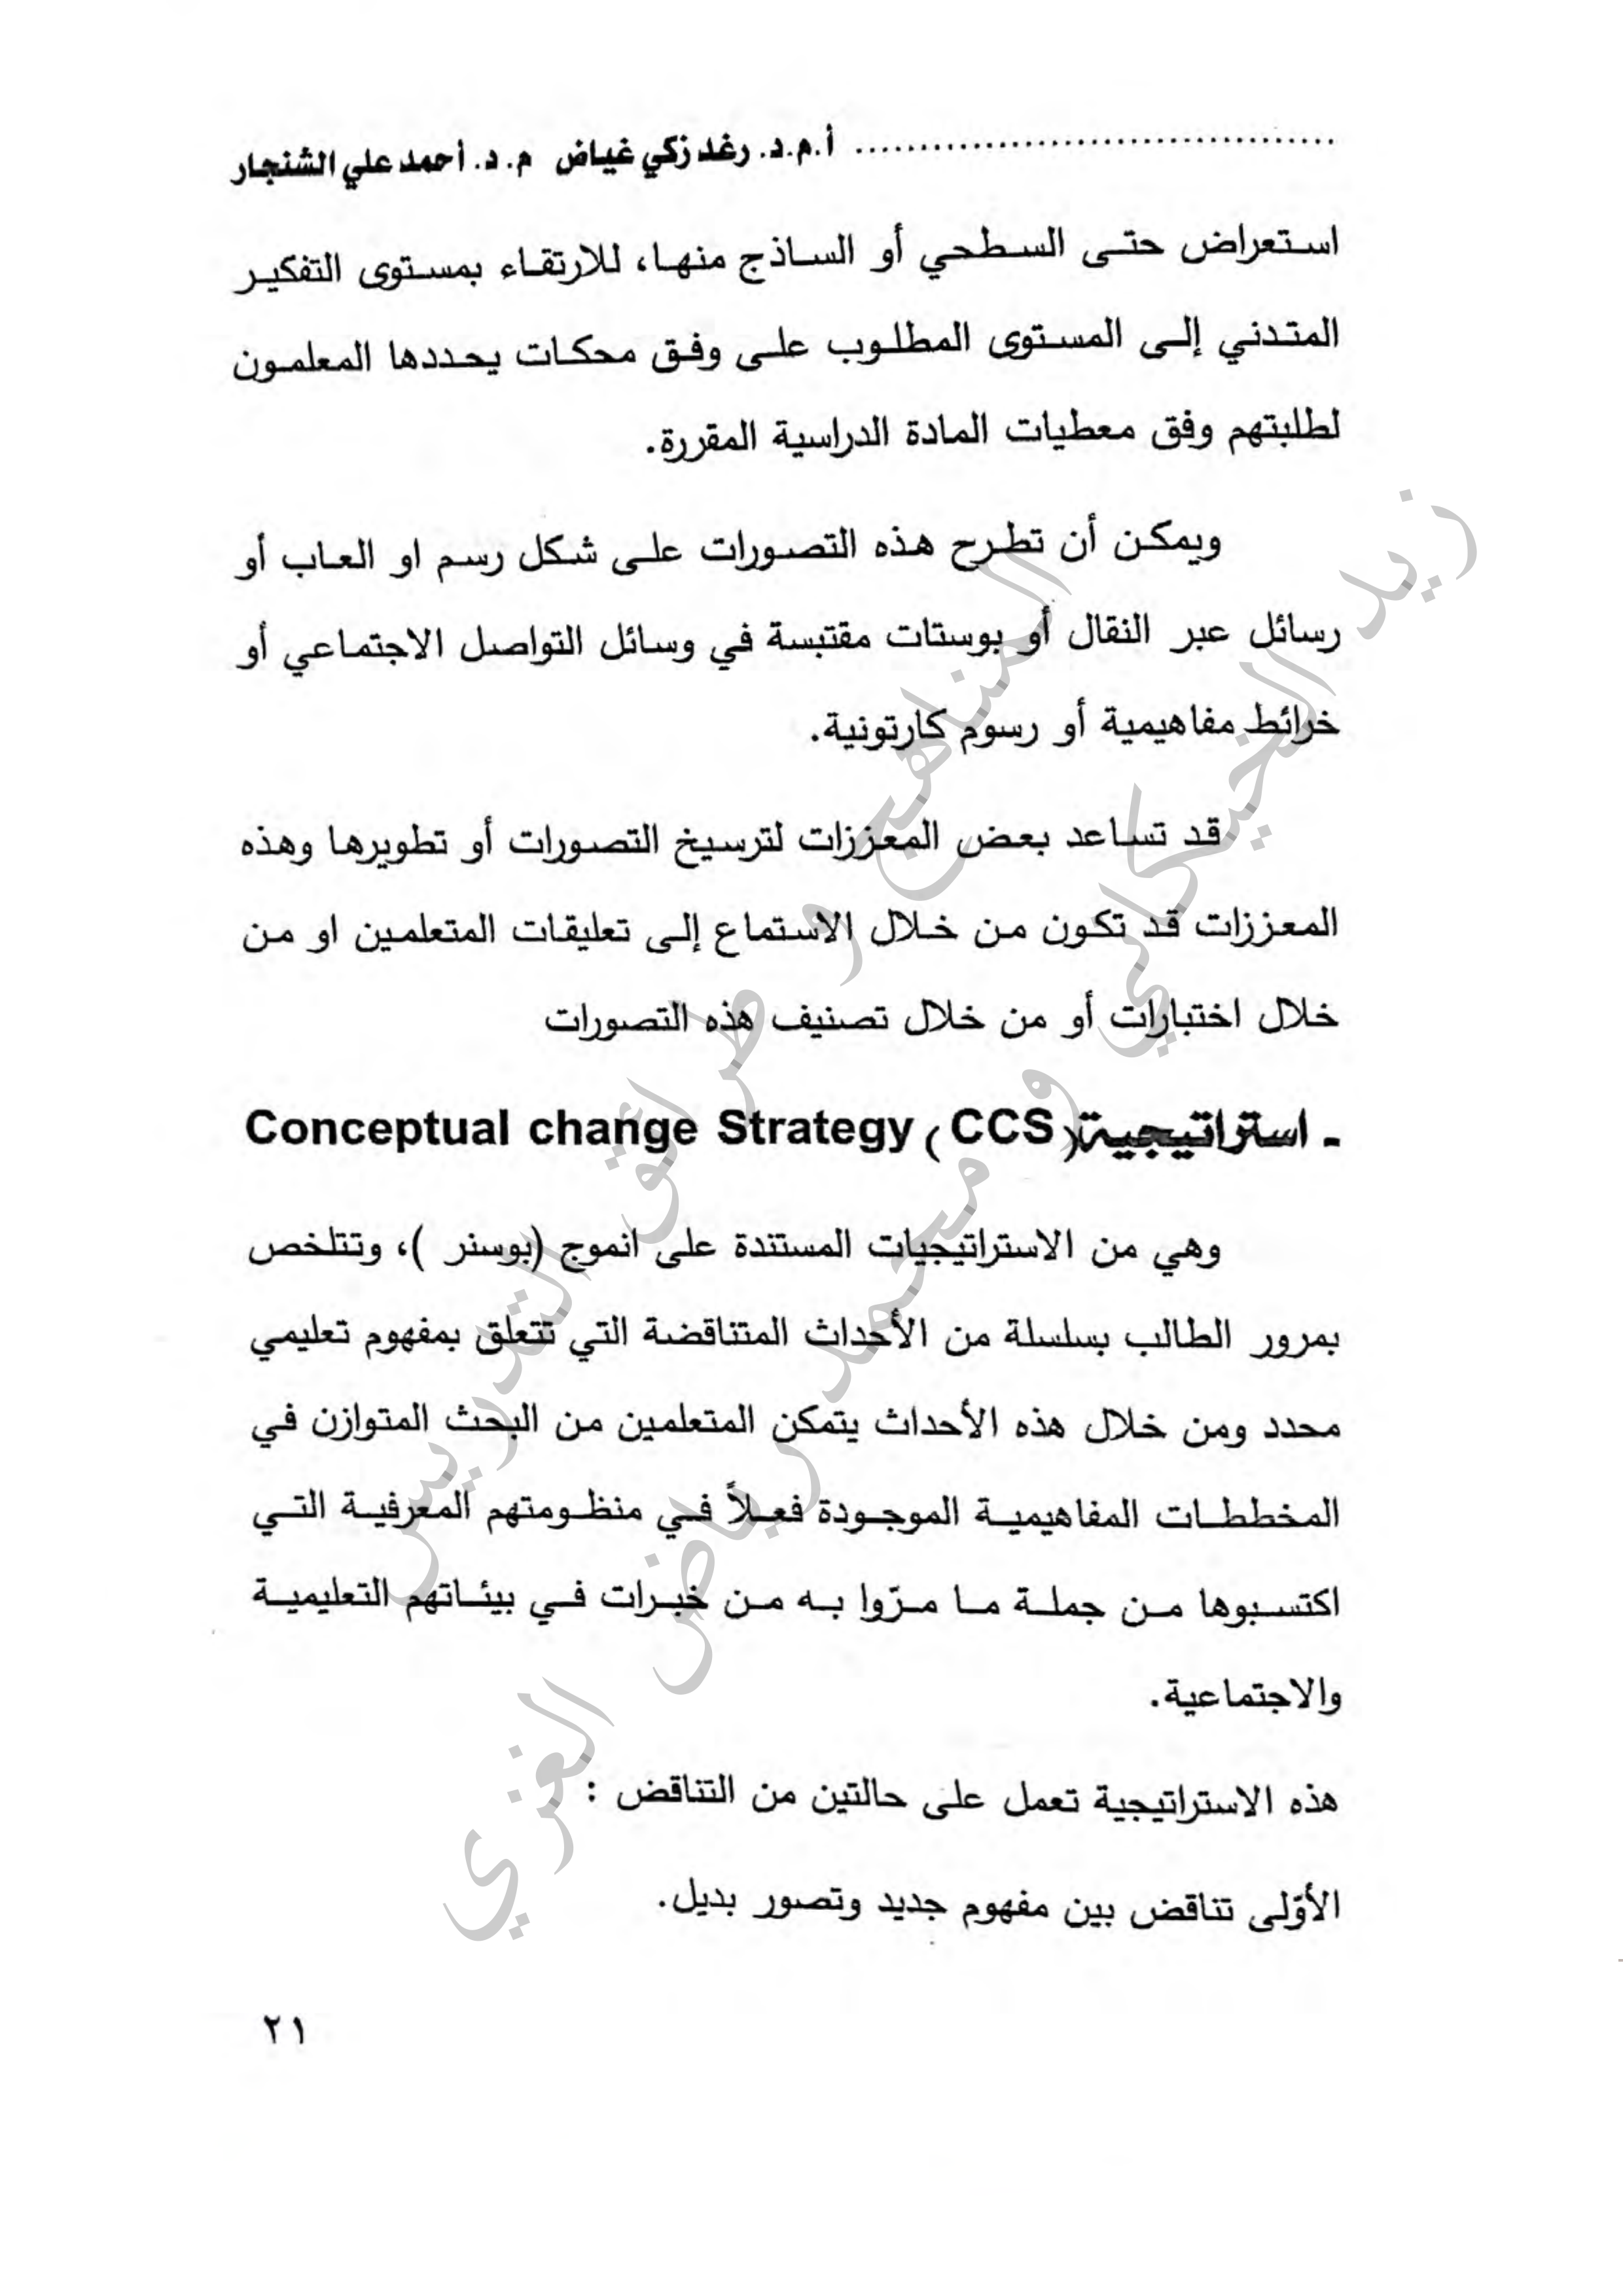 أ.م.د. رغد زكي غياض م. د. أحمد علي الشنجار
استعراض حتى السطحي أو الساذج منها، للارتقاء بمستوى التفكير
المتدني إلى المستوى المطلوب على وفق محكات يحددها المعلمون
لطلبتهم وفق معطيات المادة الدراسية المقررة.
ويمكن أن تطرح هذه التصورات على شكل رسم او العاب أو
رسائل عبر النقال أو بوستات مقتبسة في وسائل التواصل الاجتماعي أو
خرائط مفاهيمية أو رسوم كارتونية.
قد تساعد بعض المعززات لترسيخ التصورات أو تطويرها وهذه
المعززات قد تكون من خلال الاستماع إلى تعليقات المتعلمين او من
خلال اختبارات أو من خلال تصنيف هذه التصورات
- استراتيجية (CCS) Conceptual change Strategy
وهي من الاستراتيجيات المستندة على انموج (بوسنر )، وتتلخص
بمرور الطالب بسلسلة من الأحداث المتناقضة التي تتعلق بمفهوم تعليمي
محدد ومن خلال هذه الأحداث يتمكن المتعلمين من البحث المتوازن في
المخططات المفاهيمية الموجودة فعلاً في منظومتهم المعرفية التي
اكتسبوها من جملة ما مرّوا به من خبرات في بيئاتهم التعليمية
والاجتماعية.
هذه الاستراتيجية تعمل على حالتين من التناقض :
الأوّلى تناقض بين مفهوم جديد وتصور بديل.
٢١
المناهج و طرائق التدريس
زيد الخيكاني و محمد رياض الغزي